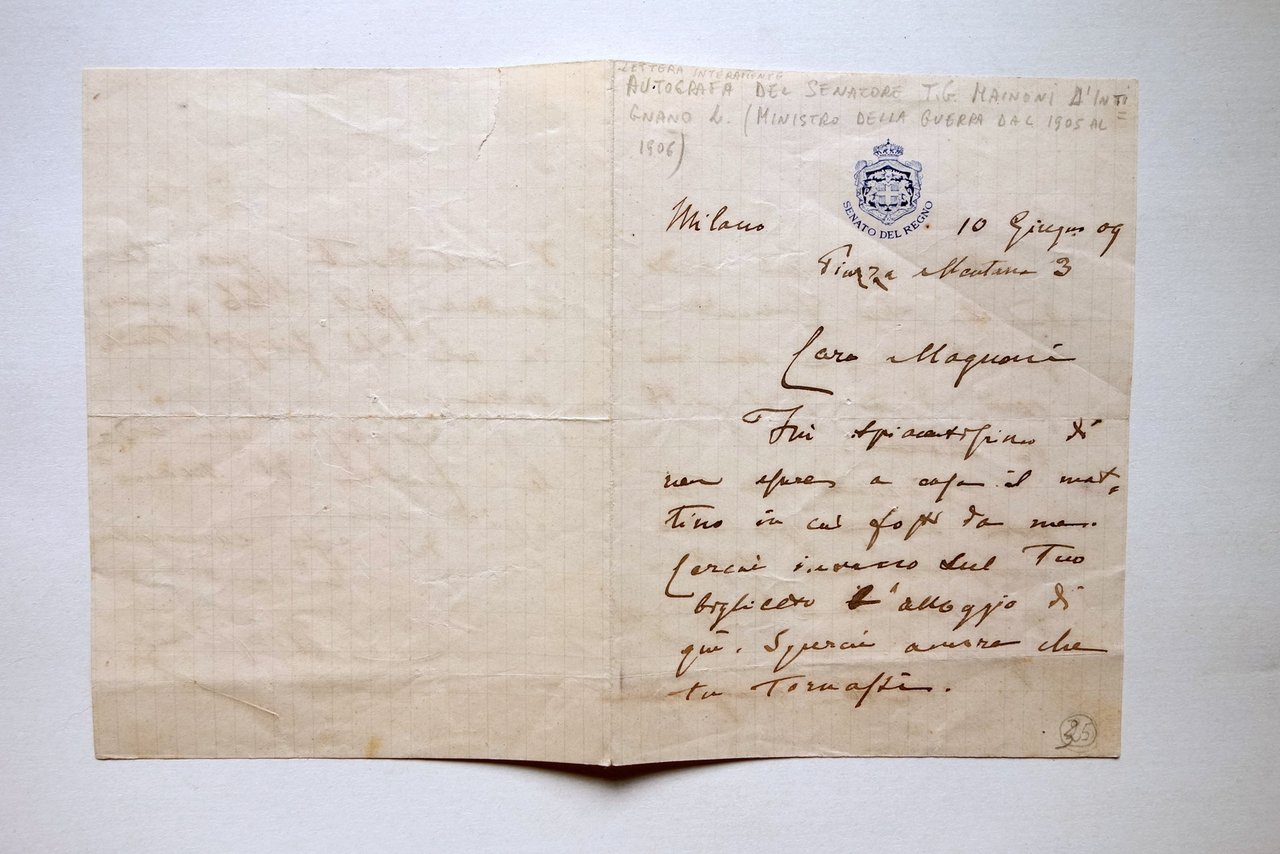 LETTERA INTERAMENTE
AUTOGRAFA DEL SENATORE T.G. MAINONI D'INTI=
GNANO L. (MINISTRO DELLA GUERRA DAL 1905 AL
1906)
SENATO DEL REGNO
Milano 10 Giugno 09
Piazza Mentana 3
Caro Magnani
Fui spiacentissimo di
non essere a casa il mat=
tino in cui fosti da me.
Cercai invano sul Tuo
biglietto l'alloggio di
qui. Sperai ancora che
tu tornassi.
35